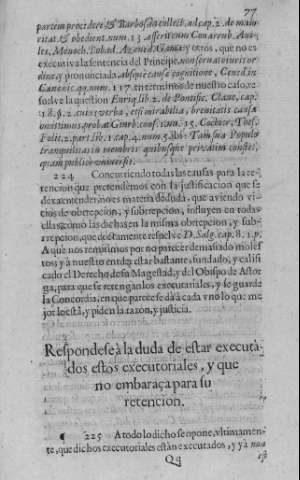 77
partem procedere & Barbosa in collect. ad cap. 2. de maio-
ritat. & obedient. num. 13 asserit
les, Menoch. y otros, que no es
executiva la sentencia del Principe, non servato iuris or
dine, y pronunciada, absque causa cognitione,
Canonic. qq. num. 117. en terminos de nuestro caso, re-
solve la question Enriq. lib. 2. de Pontific. Clave, cap.
18. §. 2. cuius verba, etsi mirabilia, brevitatis causa
omittimus, probat num. 15.
Polit. 2. part. lib. 1. cap. 4. num. 5. ibi: Tam sua Populo
tranquilitas in membris quibusque privatim consistet,
quam publice universis.
224 Concurriendo todas las causas para la re-
tencion que pretendemos con la justificacion que se
dexa entender, no es materia dudosa, que aviendo vi-
cios de obrepcion, y subrepcion, influyen en todas
ellas, como las dichas en la misma obrepcion, y sub-
rrepcion, que doctamente resuelve D. Salg. cap. 8. 1. p.
A que nos remitimos por no parecer demasiado moles
tos; y à nuestro entender estar bastante, fundado, y califi
cado el Derecho de su Magestad; y del Obispo de Astor
ga, para que se retengan los executoriales, y se guarde
la Concordia, en que parece se dà à cada vno lo que me
jor le està, y piden la razon, y justicia.
Respondese à la duda de estar executa-
dos estos executoriales, y que
no embaraça para su
retencion.
225 A todo lo dicho se opone, vltimamen-
te, que dichos executoriales estàn executados, y yà no
Qq